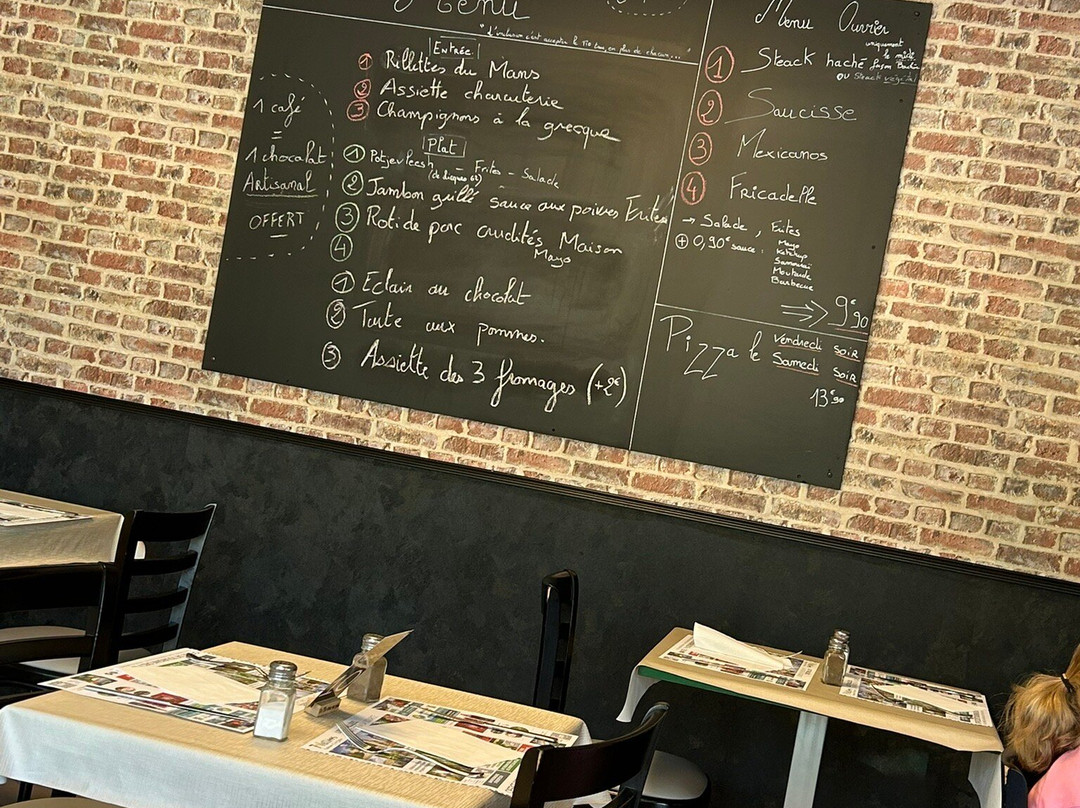 Menu
Entrée
1 Rillettes du Mans
2 Assiette charcuterie
3 Champignons à la grecque
Plat
1 Potjevleesh - Frites - Salade
2 Jambon grillé sauce aux poivres Frites
3 Roti de porc crudités Maison
Mayo
4
1 Eclair au chocolat
2 Tarte aux pommes.
3 Assiette des 3 fromages (+2€)
1 café
=
1 chocolat
Artisanal
OFFERT
Menu Ouvrier
uniquement
le midi
1 Steack haché façon
ou Steack végétal
2 Saucisse
3 Mexicanos
4 Fricadelle
→ Salade, Frites
+ 0,90€ sauce :
Mayo
Ketchup
Samouraï
Moutarde
Barbecue
9€90
Pizza le Vendredi soir
Samedi soir
13€90